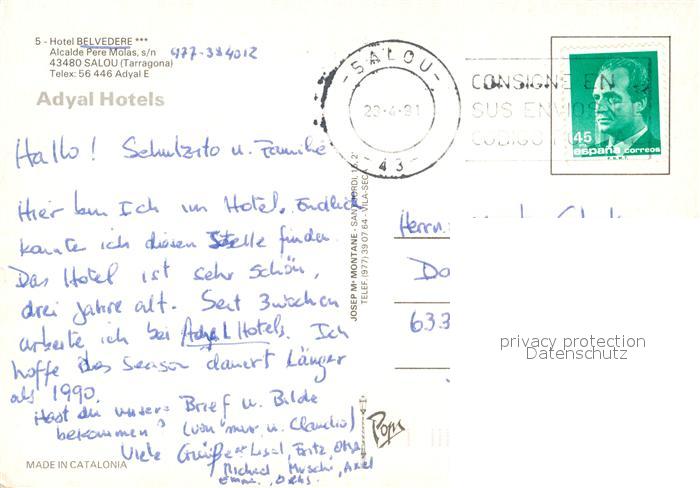 5 - Hotel BELVEDERE ***
Alcalde Pere Molas, s/n 977-384012
43480 SALOU (Tarragona)
Telex: 56 446 Adyal E
Adyal Hotels
- SALOU -
29-4-91
- 43 -
CONSIGNE EN
SUS ENVIOS
CODIGO
45
españa correos
F.N.M.T.
Hallo! Schulzito u. Familie
Hier bin Ich im Hotel. Endlich
konnte ich diesen Stelle finden.
Das Hotel ist sehr schön,
drei Jahre alt. Seit 3 Wochen
arbeite ich bei Adyal Hotels. Ich
hoffe das Season dauert Länger
als 1990.
Hast du unsere Brief u. Bilde
bekommen? (von mir u. Claudio)
Viele Grüße Lisal, Fritz,
Michael, Muschi, Axel
JOSEP Mª MONTANE - SANT JORDI,
TELEF. (977) 39 07 64 - VILA-SECA
Herrn
Do
633
Pops
privacy protection
Datenschutz
MADE IN CATALONIA